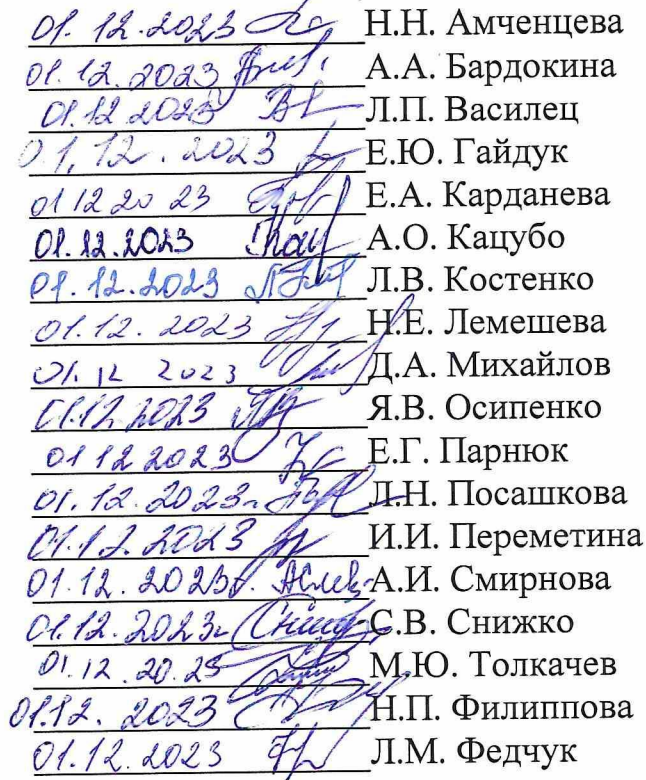 01.12.2023 Н.Н. Амченцева
01.12.2023 А.А. Бардокина
01.12.2023 Л.П. Василец
01.12.2023 Е.Ю. Гайдук
01 12 20 23 Е.А. Карданева
01.12.2023 А.О. Кацубо
01.12.2023 Л.В. Костенко
01.12.2023 Н.Е. Лемешева
01.12 2023 Д.А. Михайлов
01.12.2023 Я.В. Осипенко
01 12 2023 Е.Г. Парнюк
01.12.2023г. Л.Н. Посашкова
01.12.2023 И.И. Переметина
01.12.2023г. А.И. Смирнова
01.12.2023г. С.В. Снижко
01.12.20.23 М.Ю. Толкачев
01.12.2023 Н.П. Филиппова
01.12.2023 Л.М. Федчук